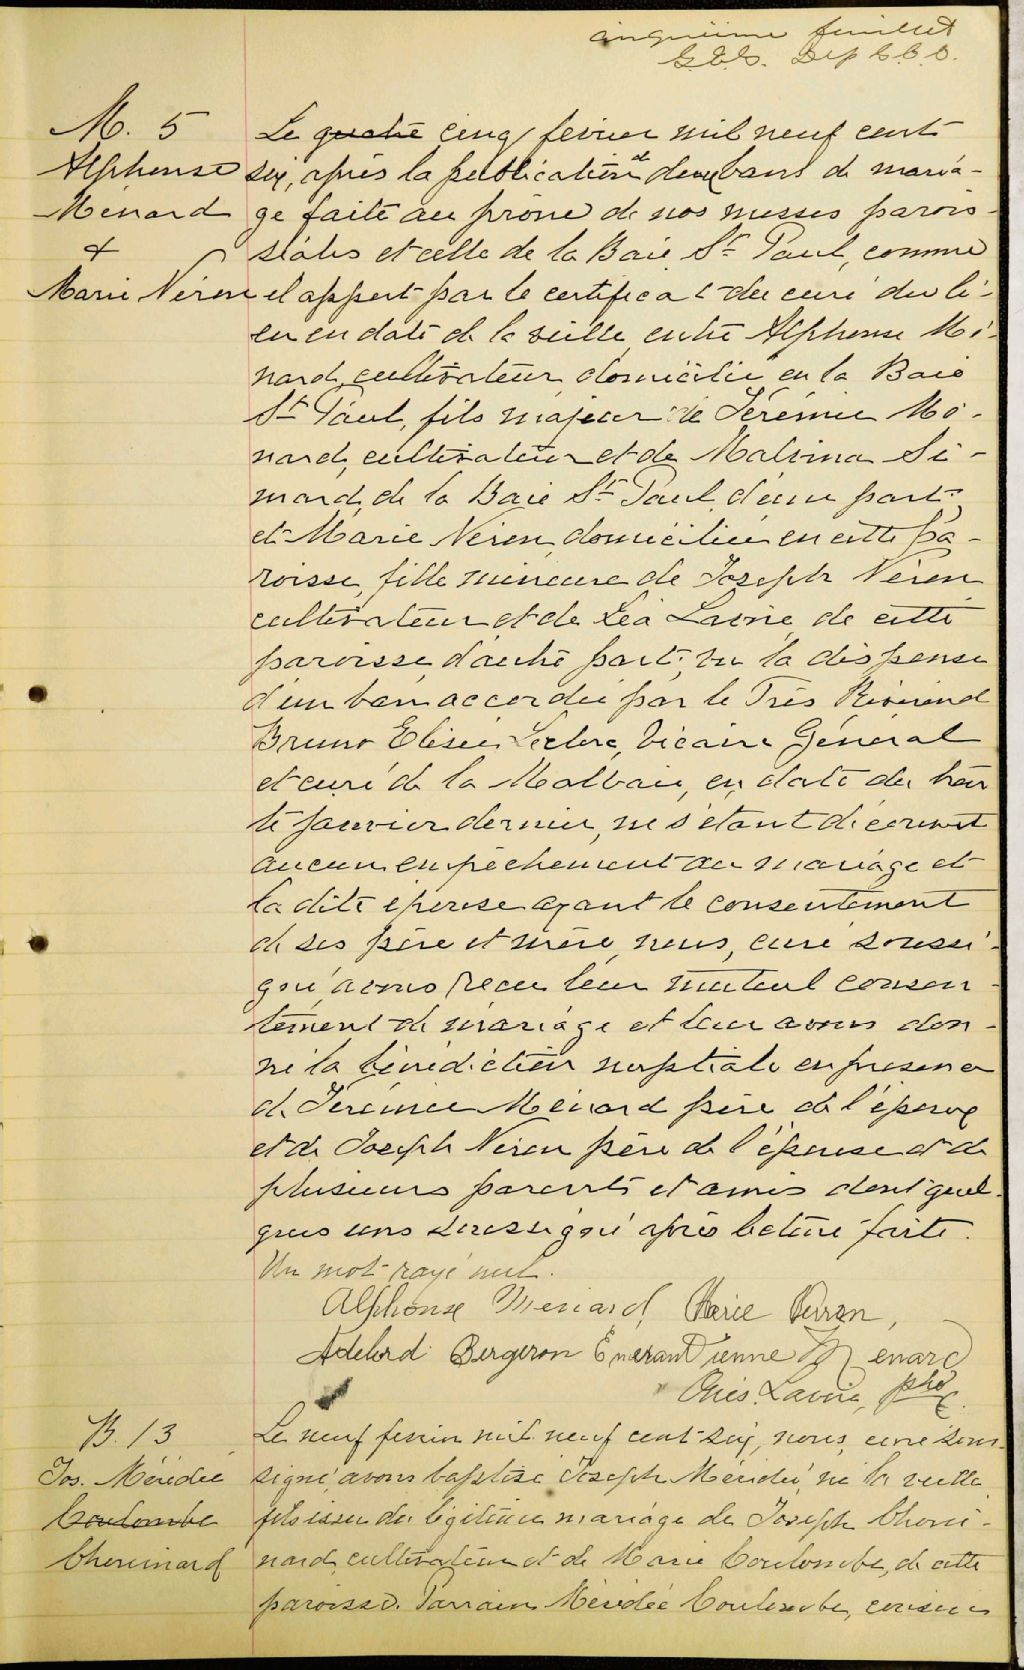 cinquième feuillet
G.E.G. Dep C.C.S.
M. 5
Alphonse
Ménard
+
Marie Néron
Le quatre cinq février mil neuf cent
six, après la publication de deux bans de maria-
ge faite au prône de nos messes parois-
siales et celle de la Baie St Paul, comme
il appert par le certificat du curé du li-
eu en date de la veille, entre Alphonse Mé-
nard, cultivateur, domicilié en la Baie
St Paul, fils majeur de Jérémie Mé-
nard, cultivateur et de Malvina Si-
mard, de la Baie St Paul, d'une part;
et Marie Néron, domiciliée en cette pa-
roisse, fille mineure de Joseph Néron
cultivateur et de Léa Lavoie, de cette
paroisse, d'autre part; vu la dispense
d'un ban accordée par le Très Révérend
Bruno Elisée Leclerc, Vicaire Général
et curé de la Malbaie, en date du tren
te janvier dernier, ne s'étant découvert
aucun empêchement au mariage et
la dite épouse ayant le consentement
de ses père et mère, nous, curé soussi-
gné avons reçu leur mutuel consen-
tement de mariage et leur avons don-
né la bénédiction nuptiale en présence
de Jérémie Ménard père de l'époux
et de Joseph Néron père de l'épouse et de
plusieurs parents et amis dont quel-
ques uns soussigné après lecture faite.
Un mot rayé nul.
Alphonse Menard, Marie Neron,
Adelard Bergeron Etienne Menard
Lavoie, ptre
B. 13
Jos. Méridée
Coulombe
Chouinard
Le neuf février mil neuf cent six, nous, curé sous-
signé, avons baptisé Joseph Méridée, né la veille,
fils issu du légitime mariage de Joseph Choui-
nard, cultivateur et de Marie Coulombe, de cette
paroisse. Parrain Méridée Coulombe, cousin